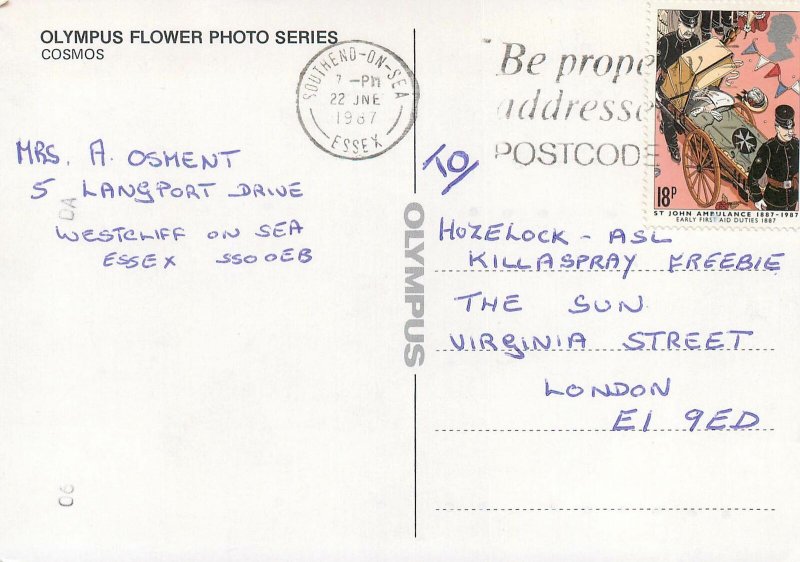 OLYMPUS FLOWER PHOTO SERIES
COSMOS
SOUTHEND-ON-SEA
7 -PM
22 JNE
1987
ESSEX
Be
addresse
POSTCODE
18P
ST JOHN AMBULANCE 1887-1987
EARLY FIRST AID DUTIES 1887
MRS. A. OSMENT
5 LANGPORT DRIVE
WESTCLIFF ON SEA
ESSEX SS0 0EB
OLYMPUS
TO/
HOZELOCK - ASL
KILLASPRAY FREEBIE
THE SUN
VIRGINIA STREET
LONDON
E1 9ED
DA
06